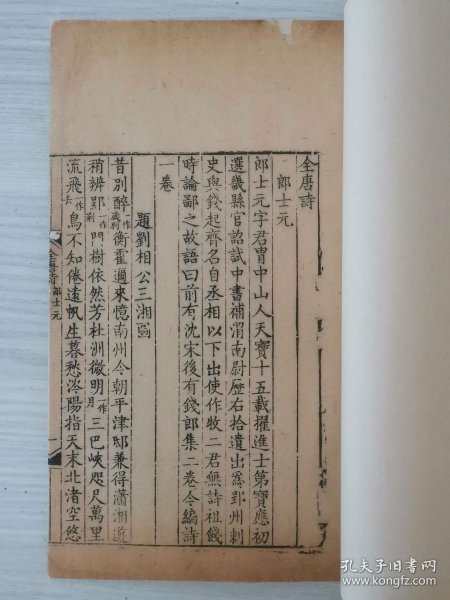 全唐詩
郎士元
郎士元字君冑中山人天寶十五載擢進士第寶應初
選畿縣官詔試中書補渭南尉歷右拾遺出爲郢州刺
史與錢起齊名自丞相以下出使作牧二君無詩祖餞
時論鄙之故語曰前有沈宋後有錢郎集二卷今編詩
一卷
題劉相公三湘圖
昔別醉一作歲別衡霍邇來憶南州今朝平津邸兼得瀟湘遊
稍辨郢一作荆門樹依然芳杜洲微明一作月三巴峽咫尺萬里
流飛一作去鳥不知倦遠帆生暮愁涔陽指天末北渚空悠
全唐詩 郎士元
孔夫子旧书网
www.kongfz.com